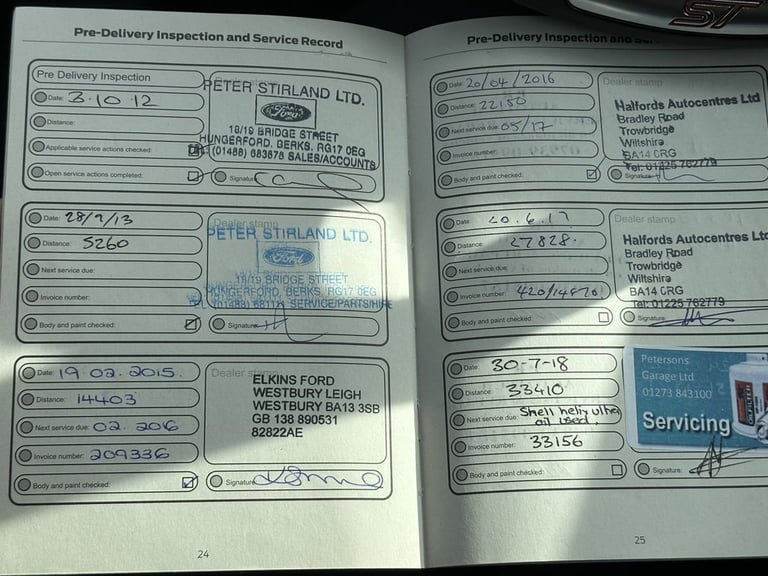 Pre-Delivery Inspection and Service Record
Pre Delivery Inspection
Date: 3.10.12
Distance:
Applicable service actions checked:
Open service actions completed:
Dealer stamp
PETER STIRLAND LTD.
Ford
18/19 BRIDGE STREET
HUNGERFORD, BERKS, RG17 0EG
(01488) 683678 SALES/ACCOUNTS
Signature:
Date: 28/9/13
Distance: 5260
Next service due:
Invoice number:
Body and paint checked:
Dealer stamp
PETER STIRLAND LTD.
Ford
18/19 BRIDGE STREET
HUNGERFORD, BERKS, RG17 0EG
SERVICE/PARTS/HIRE
Signature:
Date: 19.02.2015.
Distance: 14403
Next service due: 02.2016
Invoice number: 209336
Body and paint checked:
Dealer stamp
ELKINS FORD
WESTBURY LEIGH
WESTBURY BA13 3SB
GB 138 890531
82822AE
Signature:
24
Pre-Delivery Inspection and
ST
Date: 20/04/2016
Distance: 22150
Next service due: 05/17
Invoice number:
Body and paint checked:
Dealer stamp
Halfords Autocentres Ltd
Bradley Road
Trowbridge
Wiltshire
BA14 0RG
Tel: 01225 762779
Signature:
Date: 20.6.17
Distance: 27828.
Next service due:
Invoice number:
Body and paint checked:
Dealer stamp
Halfords Autocentres Ltd
Bradley Road
Trowbridge
Wiltshire
BA14 0RG
Tel: 01225 762779
Signature:
Date: 30-7-18
Distance: 33410
Next service due: Shell helix ultra
oil used.
Invoice number: 33156
Body and paint checked:
Petersons
Garage Ltd
01273 843100
Servicing
OIL FILTER
Signature:
25